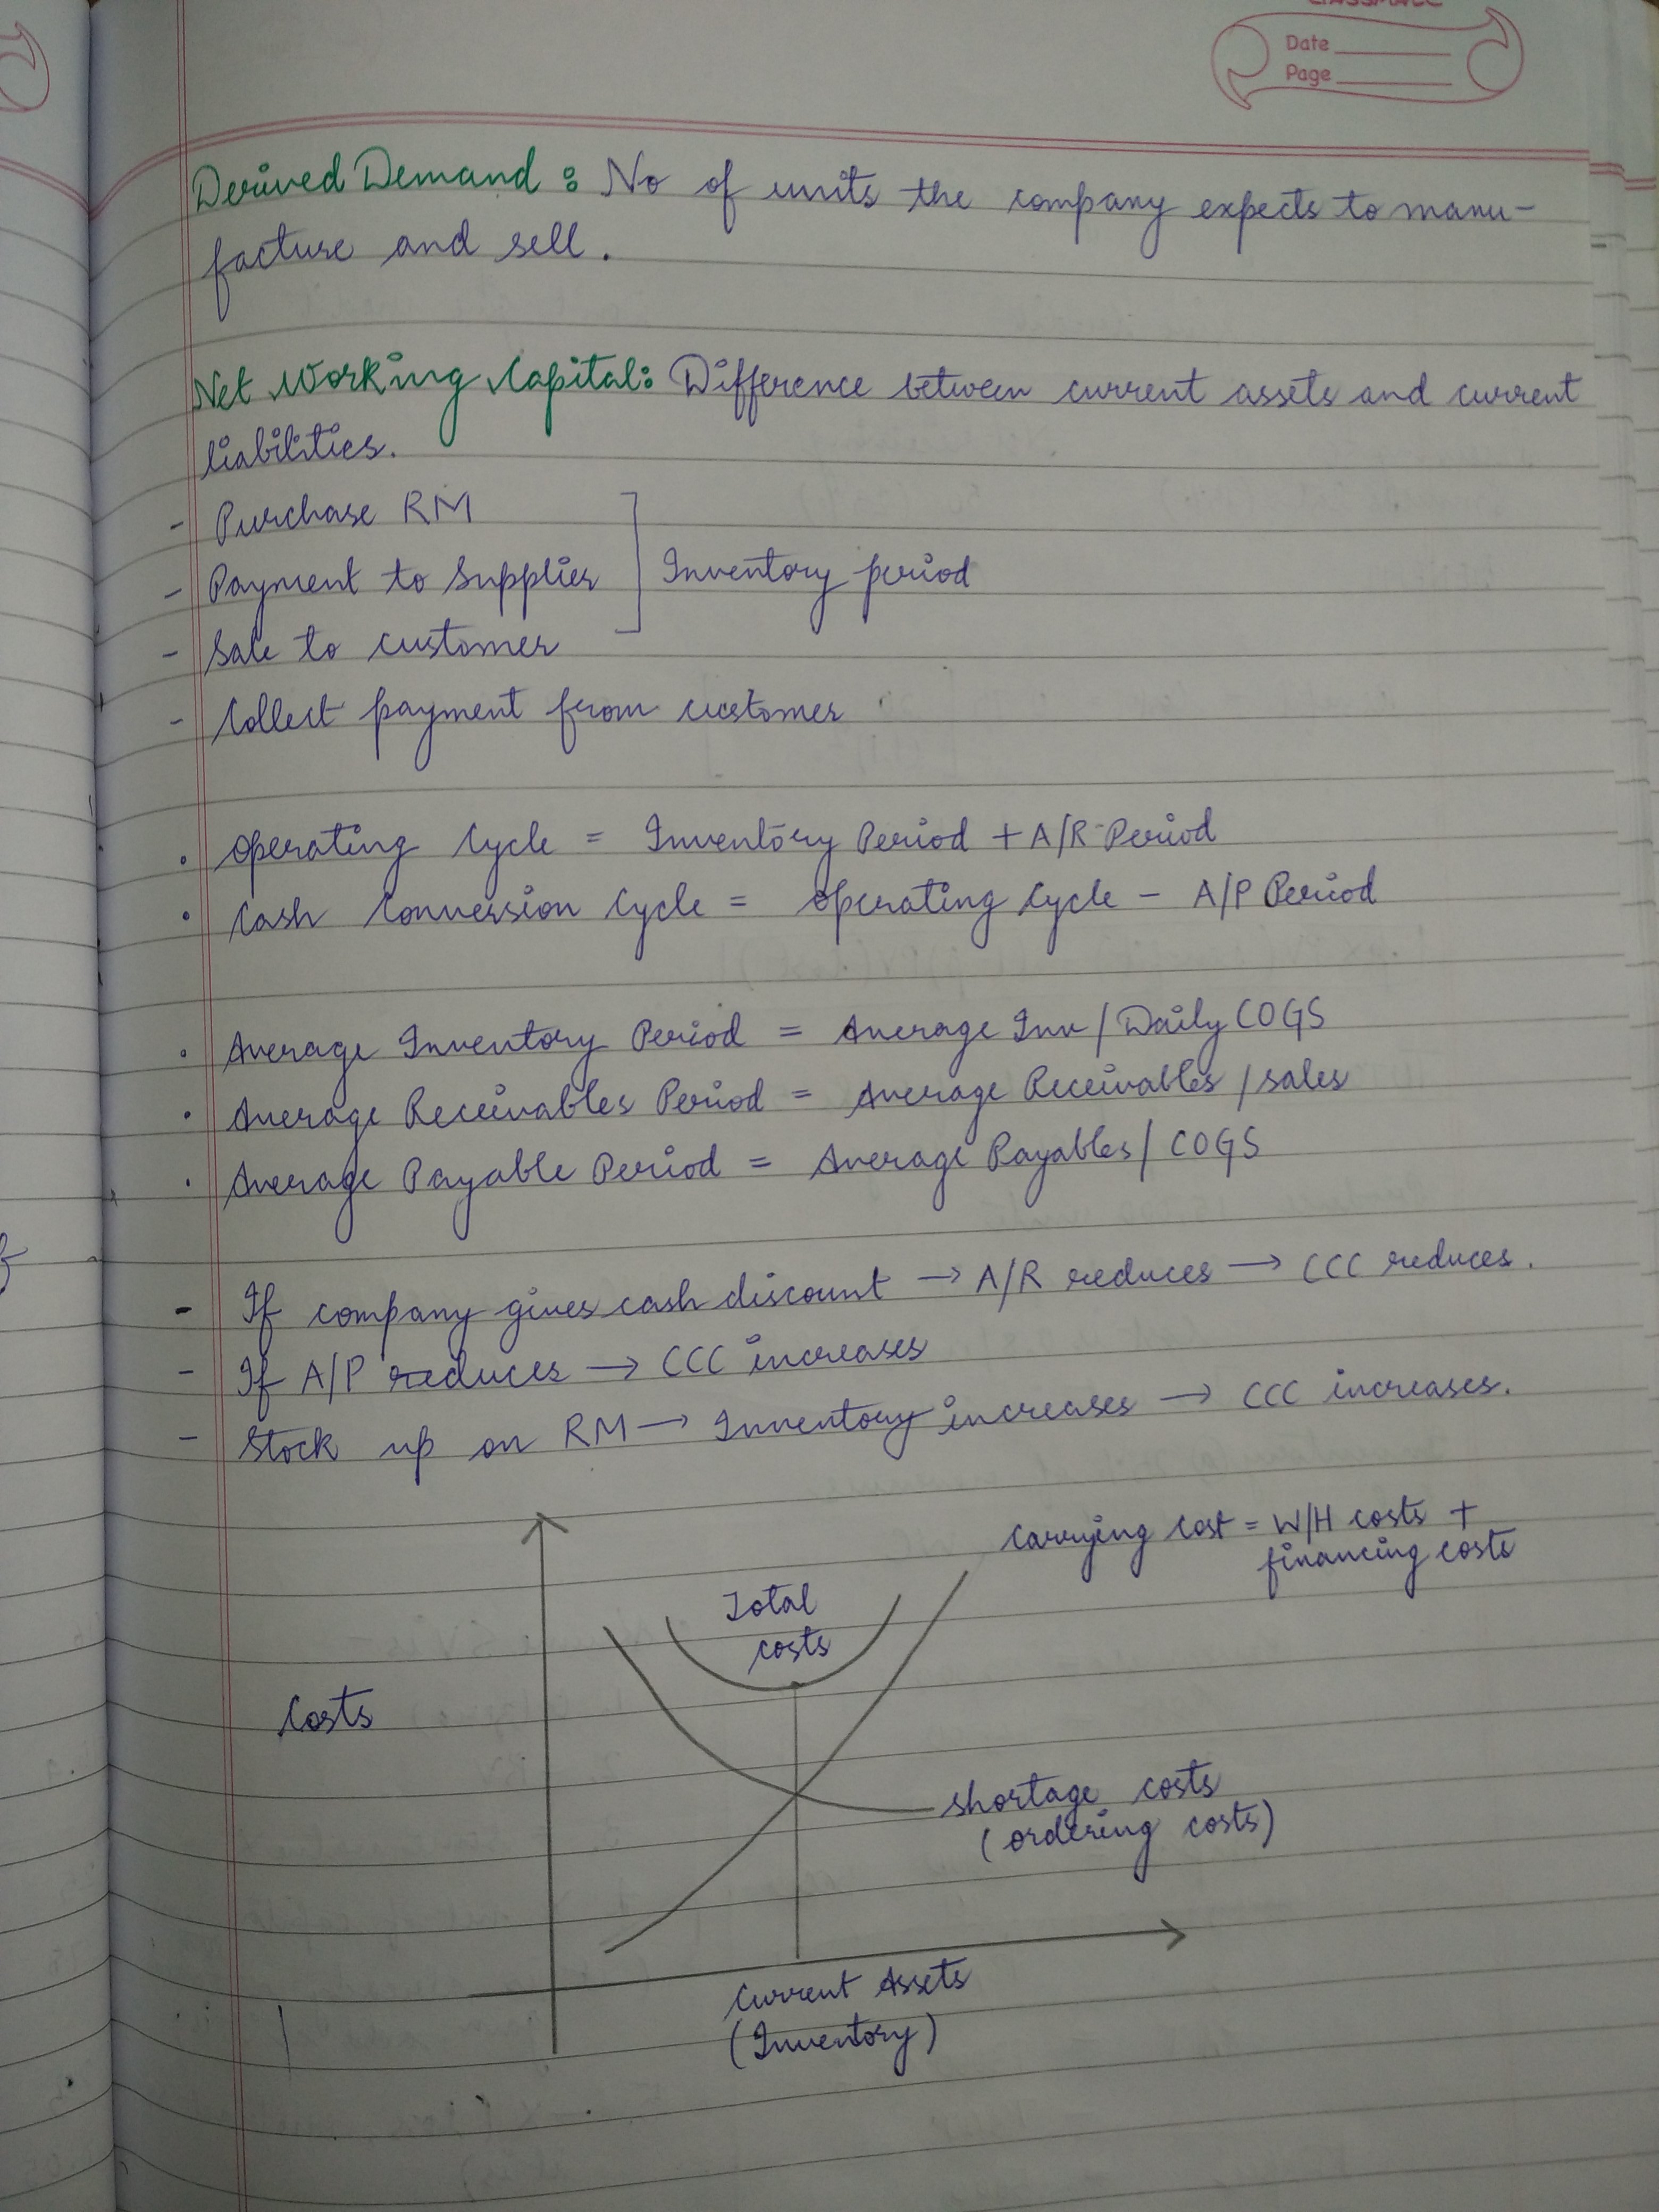 Date
Page
Derived Demand : No of units the company expects to manu-
facture and sell.
Net Working Capital: Difference between current assets and current
liabilities.
- Purchase RM
- Payment to Supplier
Inventory period
- Sale to customer
- Collect payment from customer
. Operating Cycle = Inventory Period + A/R Period
. Cash Conversion Cycle = Operating Cycle - A/P Period
. Average Inventory Period = Average Inv / Daily COGS
. Average Receivables Period = Average Receivables / Sales
. Average Payable Period = Average Payables / COGS
- If company gives cash discount → A/R reduces → CCC reduces.
- If A/P reduces → CCC increases
- Stock up on RM → Inventory increases → CCC increases.
Carrying Cost = W/H costs +
financing costs
Total
costs
Costs
Shortage costs
(ordering costs)
Current Assets
(Inventory)